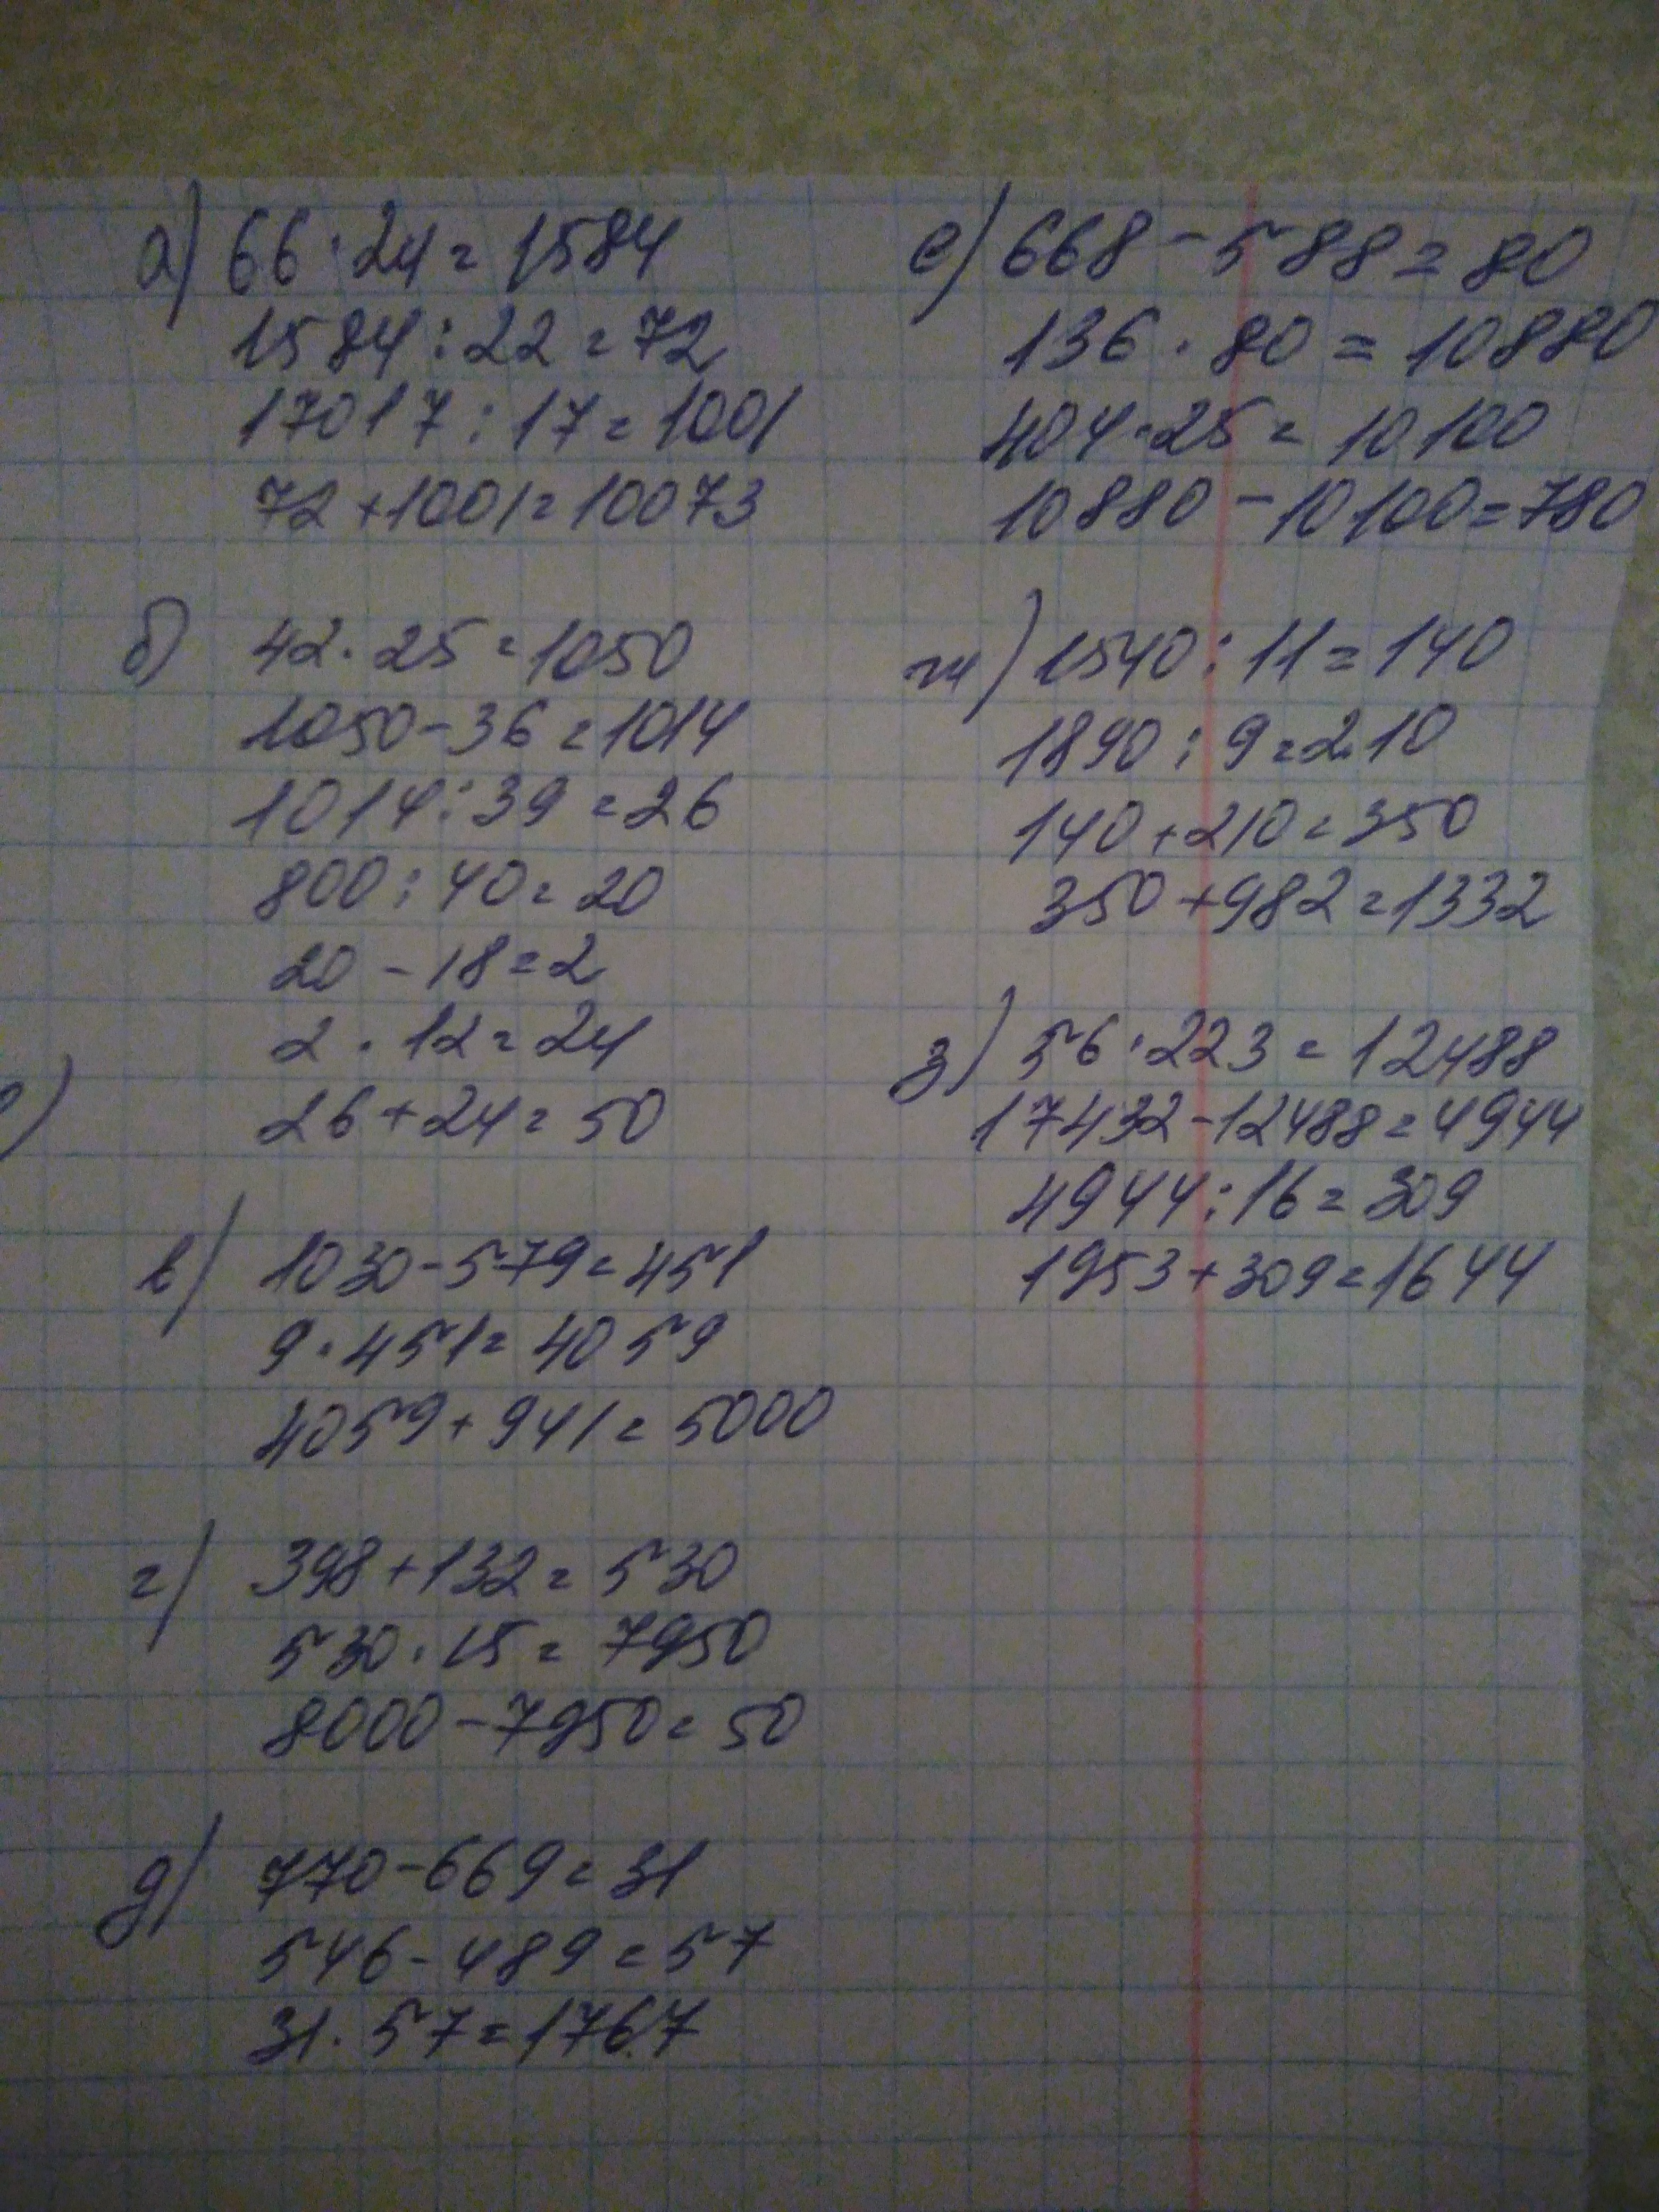 а) 66 · 24 = 1584
1584 : 22 = 72
17017 : 17 = 1001
72 + 1001 = 10073
б) 42 · 25 = 1050
1050 - 36 = 1014
1014 : 39 = 26
800 : 40 = 20
20 - 18 = 2
2 · 12 = 24
26 + 24 = 50
в) 1030 - 579 = 451
9 · 451 = 4059
4059 + 941 = 5000
г) 398 + 132 = 530
530 · 15 = 7950
8000 - 7950 = 50
д) 770 - 669 = 31
546 - 489 = 57
31 · 57 = 1767
е) 668 - 588 = 80
136 · 80 = 10880
404 · 25 = 10100
10880 - 10100 = 780
ж) 1540 : 11 = 140
1890 : 9 = 210
140 + 210 = 350
350 + 982 = 1332
з) 56 · 223 = 12488
17432 - 12488 = 4944
4944 : 16 = 309
1953 + 309 = 1644